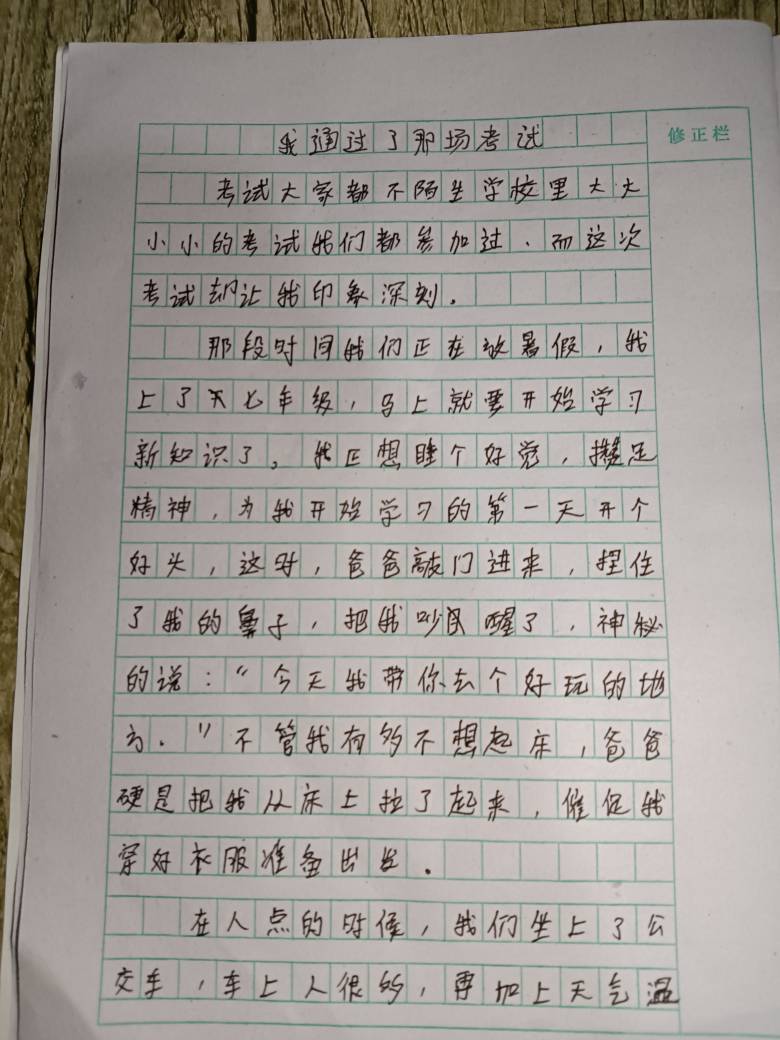 我通过了那场考试
修正栏
考试大家都不陌生学校里大大
小小的考试我们都参加过、而这次
考试却让我印象深刻.
那段时间我们正在放暑假,我
上了天七年级,马上就要开始学习
新知识了。我正想睡个好觉,攒足
精神,为我开始学习的第一天开个
好头,这时,爸爸敲门进来,捏住
了我的鼻子,把我吵醒了,神秘
的说:“今天我带你去个好玩的地
方.”不管我有多不想起床,爸爸
硬是把我从床上拉了起来,催促我
穿好衣服准备出发.
在八点的时候,我们坐上了公
交车,车上人很多,再加上天气温